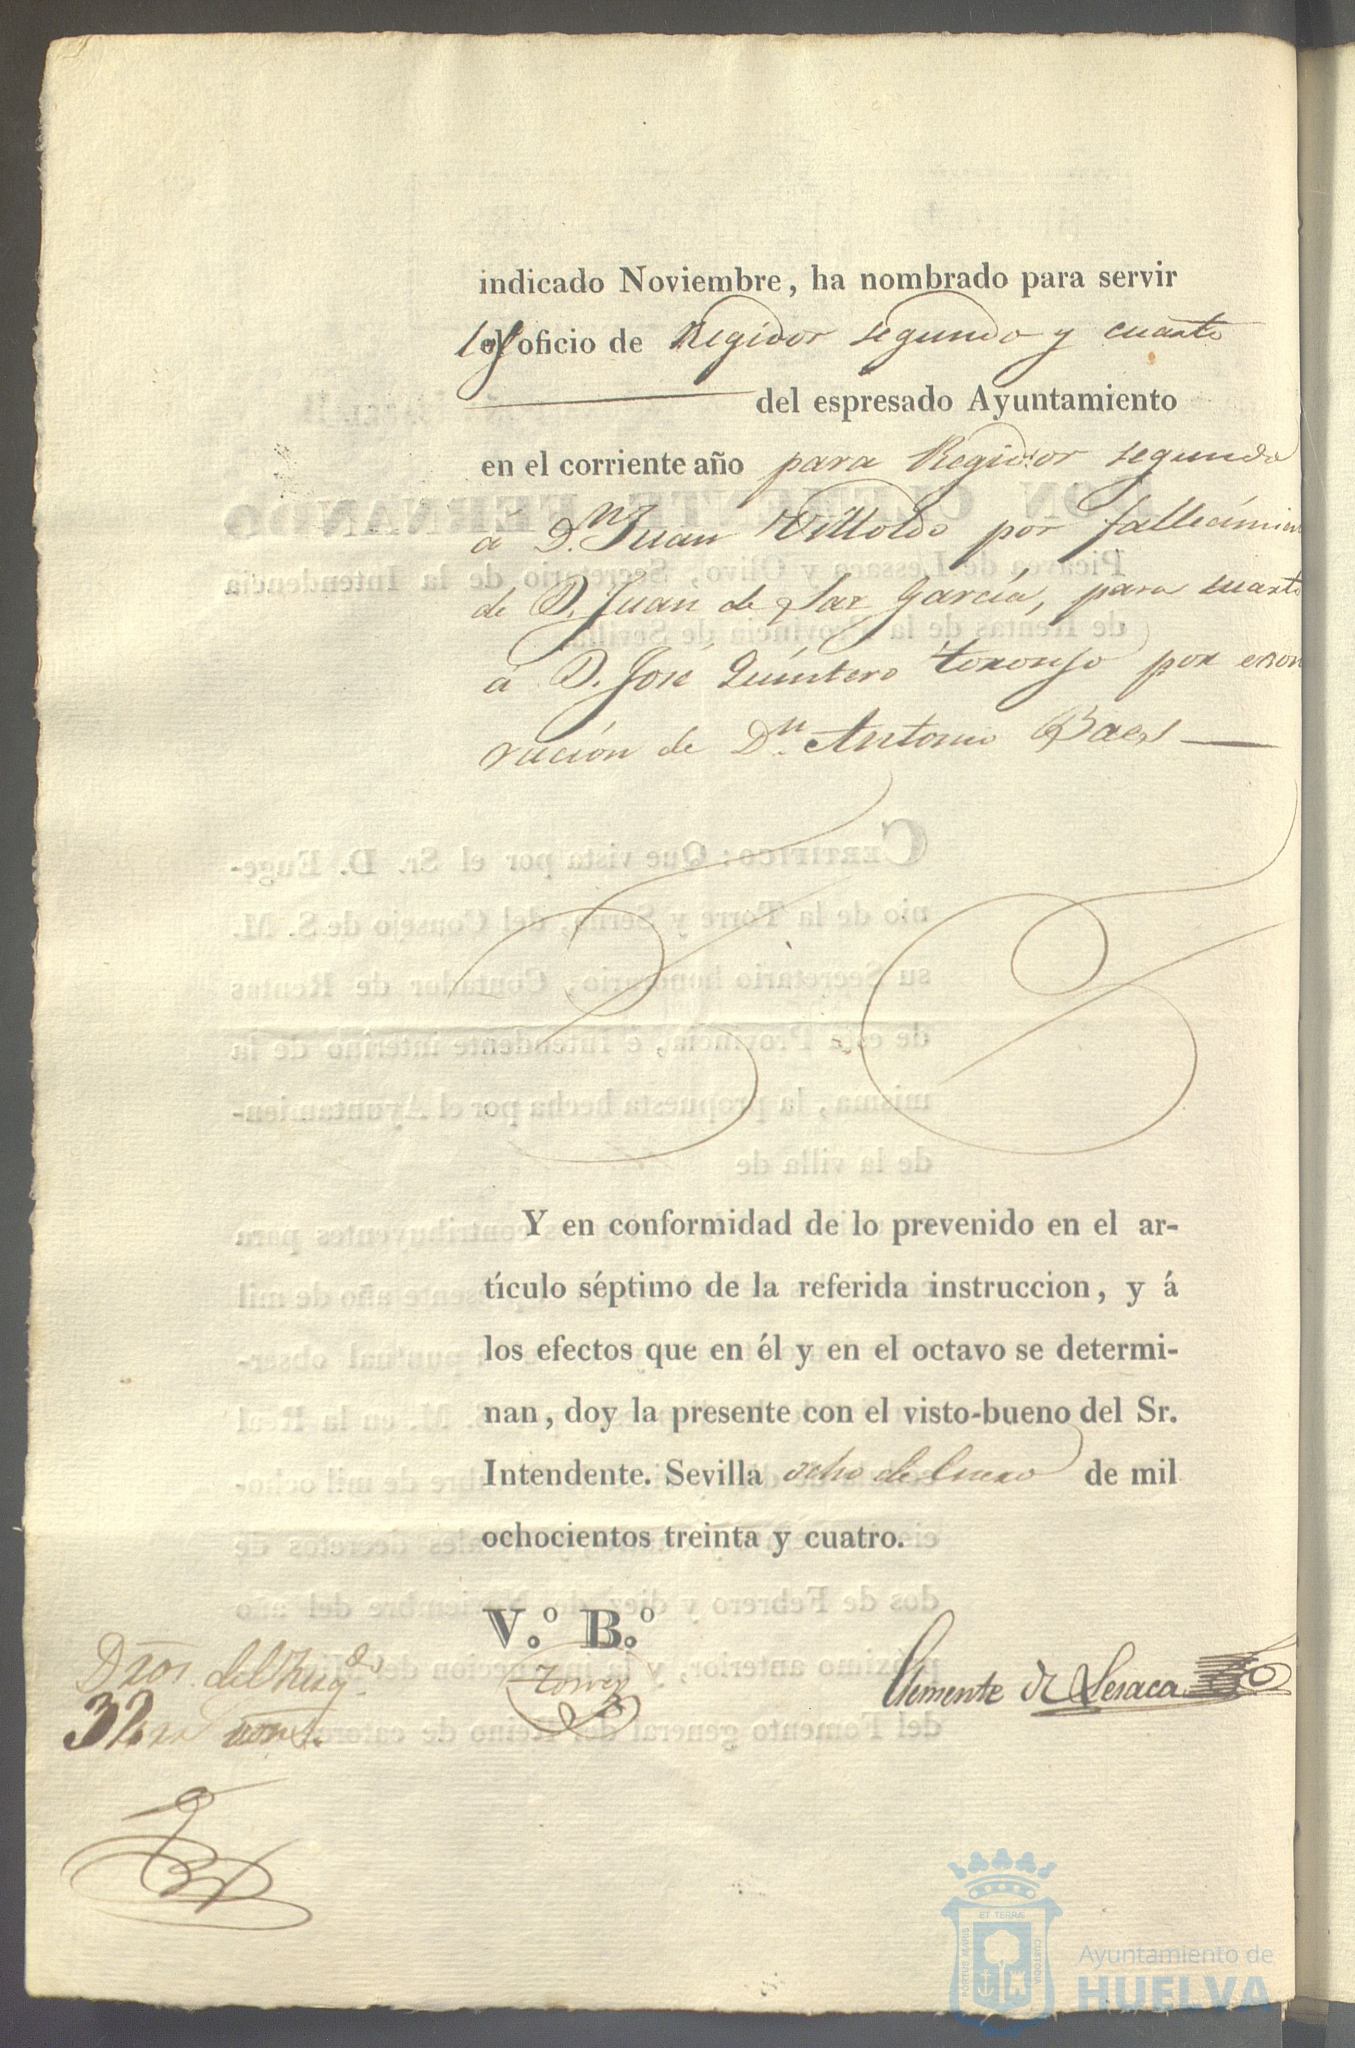 indicado Noviembre, ha nombrado para servir
los oficio de Regidor segundo y cuarto
del espresado Ayuntamiento
en el corriente año para Regidor segundo
á Dn. Juan Villoldo por fallecimien
de D. Juan de Paz García, para cuarto
á D. José Quintero Toronjo por exon
ración de Dn. Antonio Baes
Y en conformidad de lo prevenido en el ar-
tículo séptimo de la referida instruccion, y á
los efectos que en él y en el octavo se determi-
nan, doy la presente con el visto-bueno del Sr.
Intendente. Sevilla ocho de Enero de mil
ochocientos treinta y cuatro.
V.º B.º
Torre
Clemente de Lesaca
Dros. del
32
ET TERRÆ
PORTUS MARIS
CUSTODIA
Ayuntamiento de
HUELVA